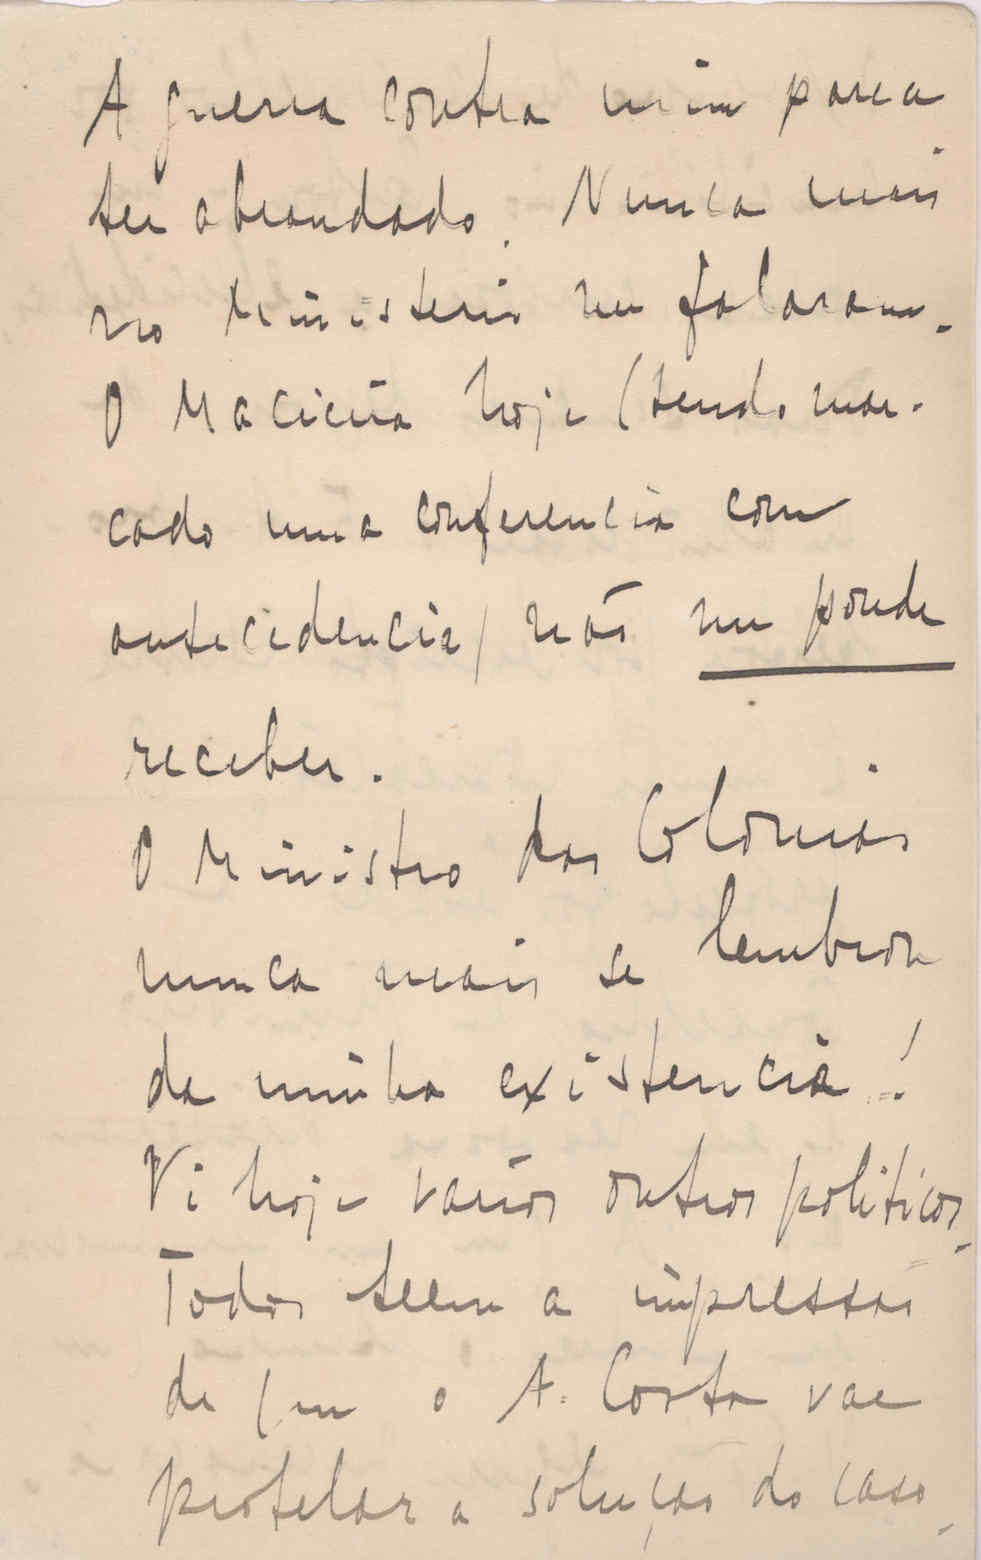 A guerra contra mim parece
ter abrandado. Nunca mais
no Ministerio me falaram.
O Macieira hoje (tendo mar-
cado uma conferencia com
antecedencia) não me poude
receber.
O Ministro das Colonias
nunca mais se lembrou
da minha existencia!
Vi hoje varios outros politicos.
Todos teem a impressão
de que o A. Costa vae
protelar a solução do caso.